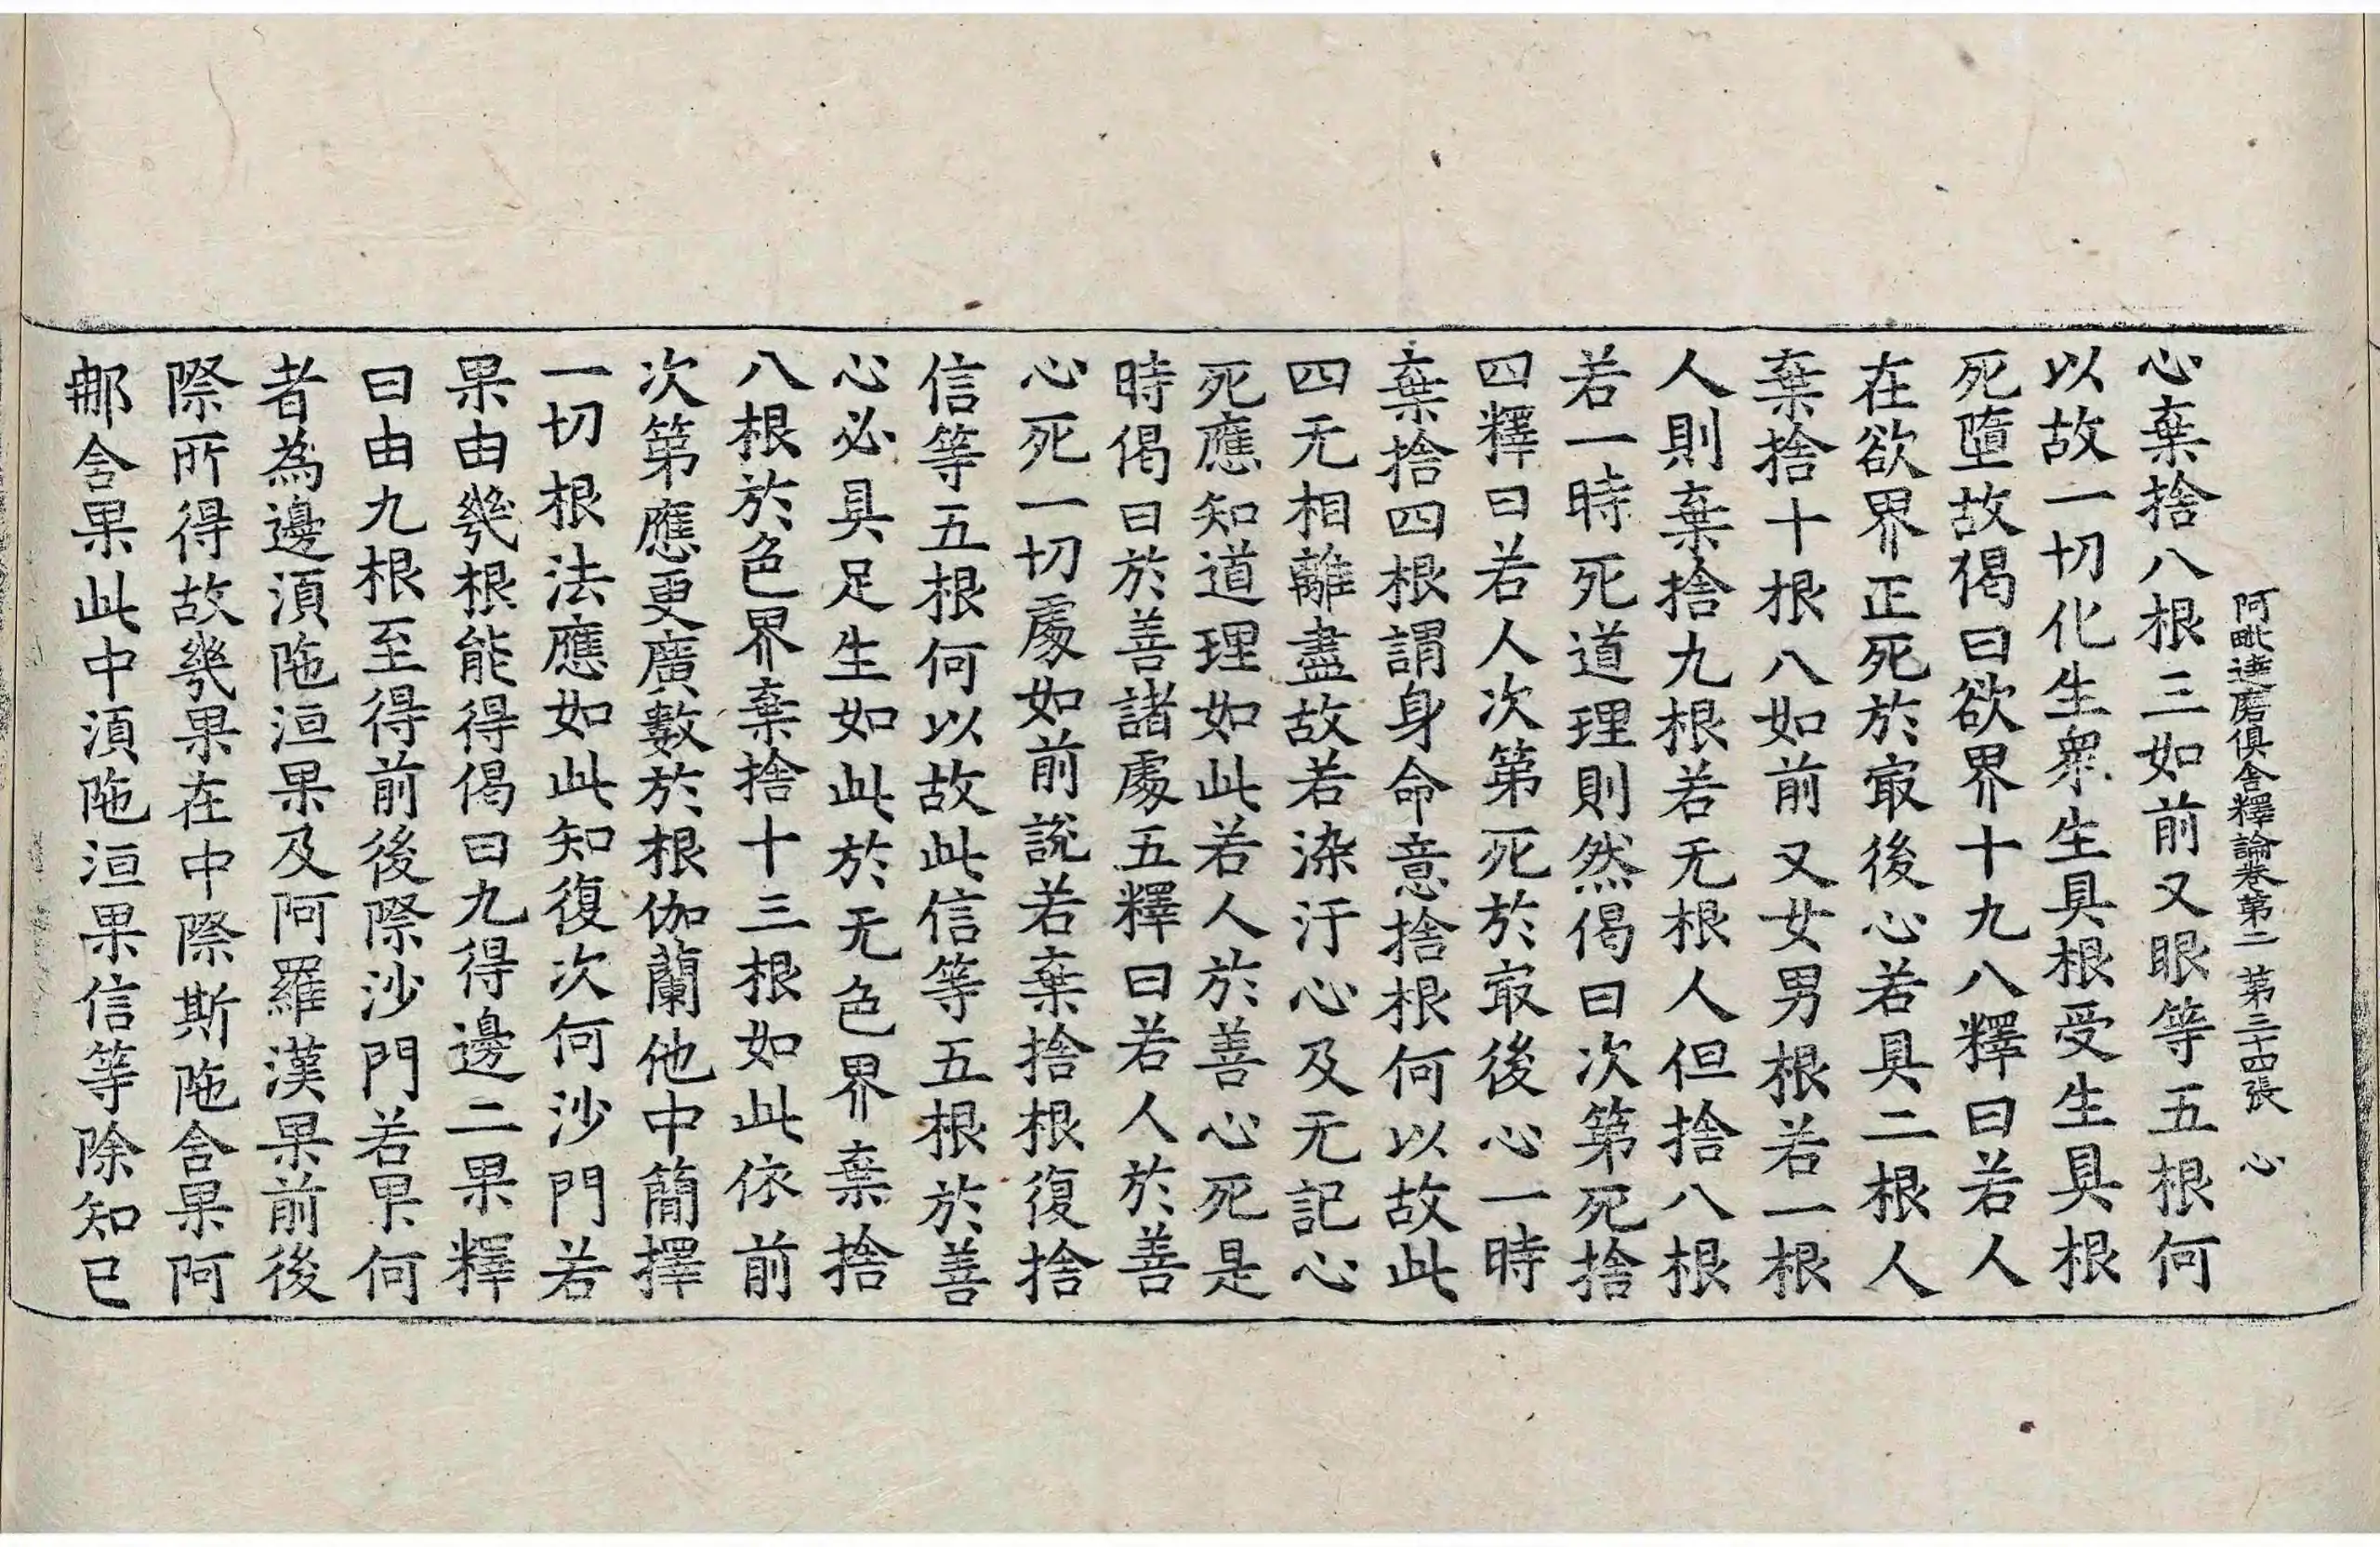 阿毗達磨俱舍釋論卷第二 第三十四張 心
心棄捨八根三如前又眼等五根何
以故一切化生衆生具根受生具根
死墮故偈曰欲界十九八釋曰若人
在欲界正死於㝡後心若具二根人
棄捨十根八如前又女男根若一根
人則棄捨九根若无根人但捨八根
若一時死道理則然偈曰次第死捨
四釋曰若人次第死於㝡後心一時
棄捨四根謂身命意捨根何以故此
四无相離盡故若染汙心及无記心
死應知道理如此若人於善心死是
時偈曰於善諸處五釋曰若人於善
心死一切處如前說若棄捨根復捨
信等五根何以故此信等五根於善
心必具足生如此於无色界棄捨
八根於色界棄捨十三根如此依前
次第應更廣數於根伽蘭他中簡擇
一切根法應如此知復次何沙門若
果由幾根能得偈曰九得邊二果釋
曰由九根至得前後際沙門若果何
者為邊湏陁洹果及阿羅漢果前後
際所得故幾果在中際斯陁含果阿
那含果此中湏陁洹果信等除知已